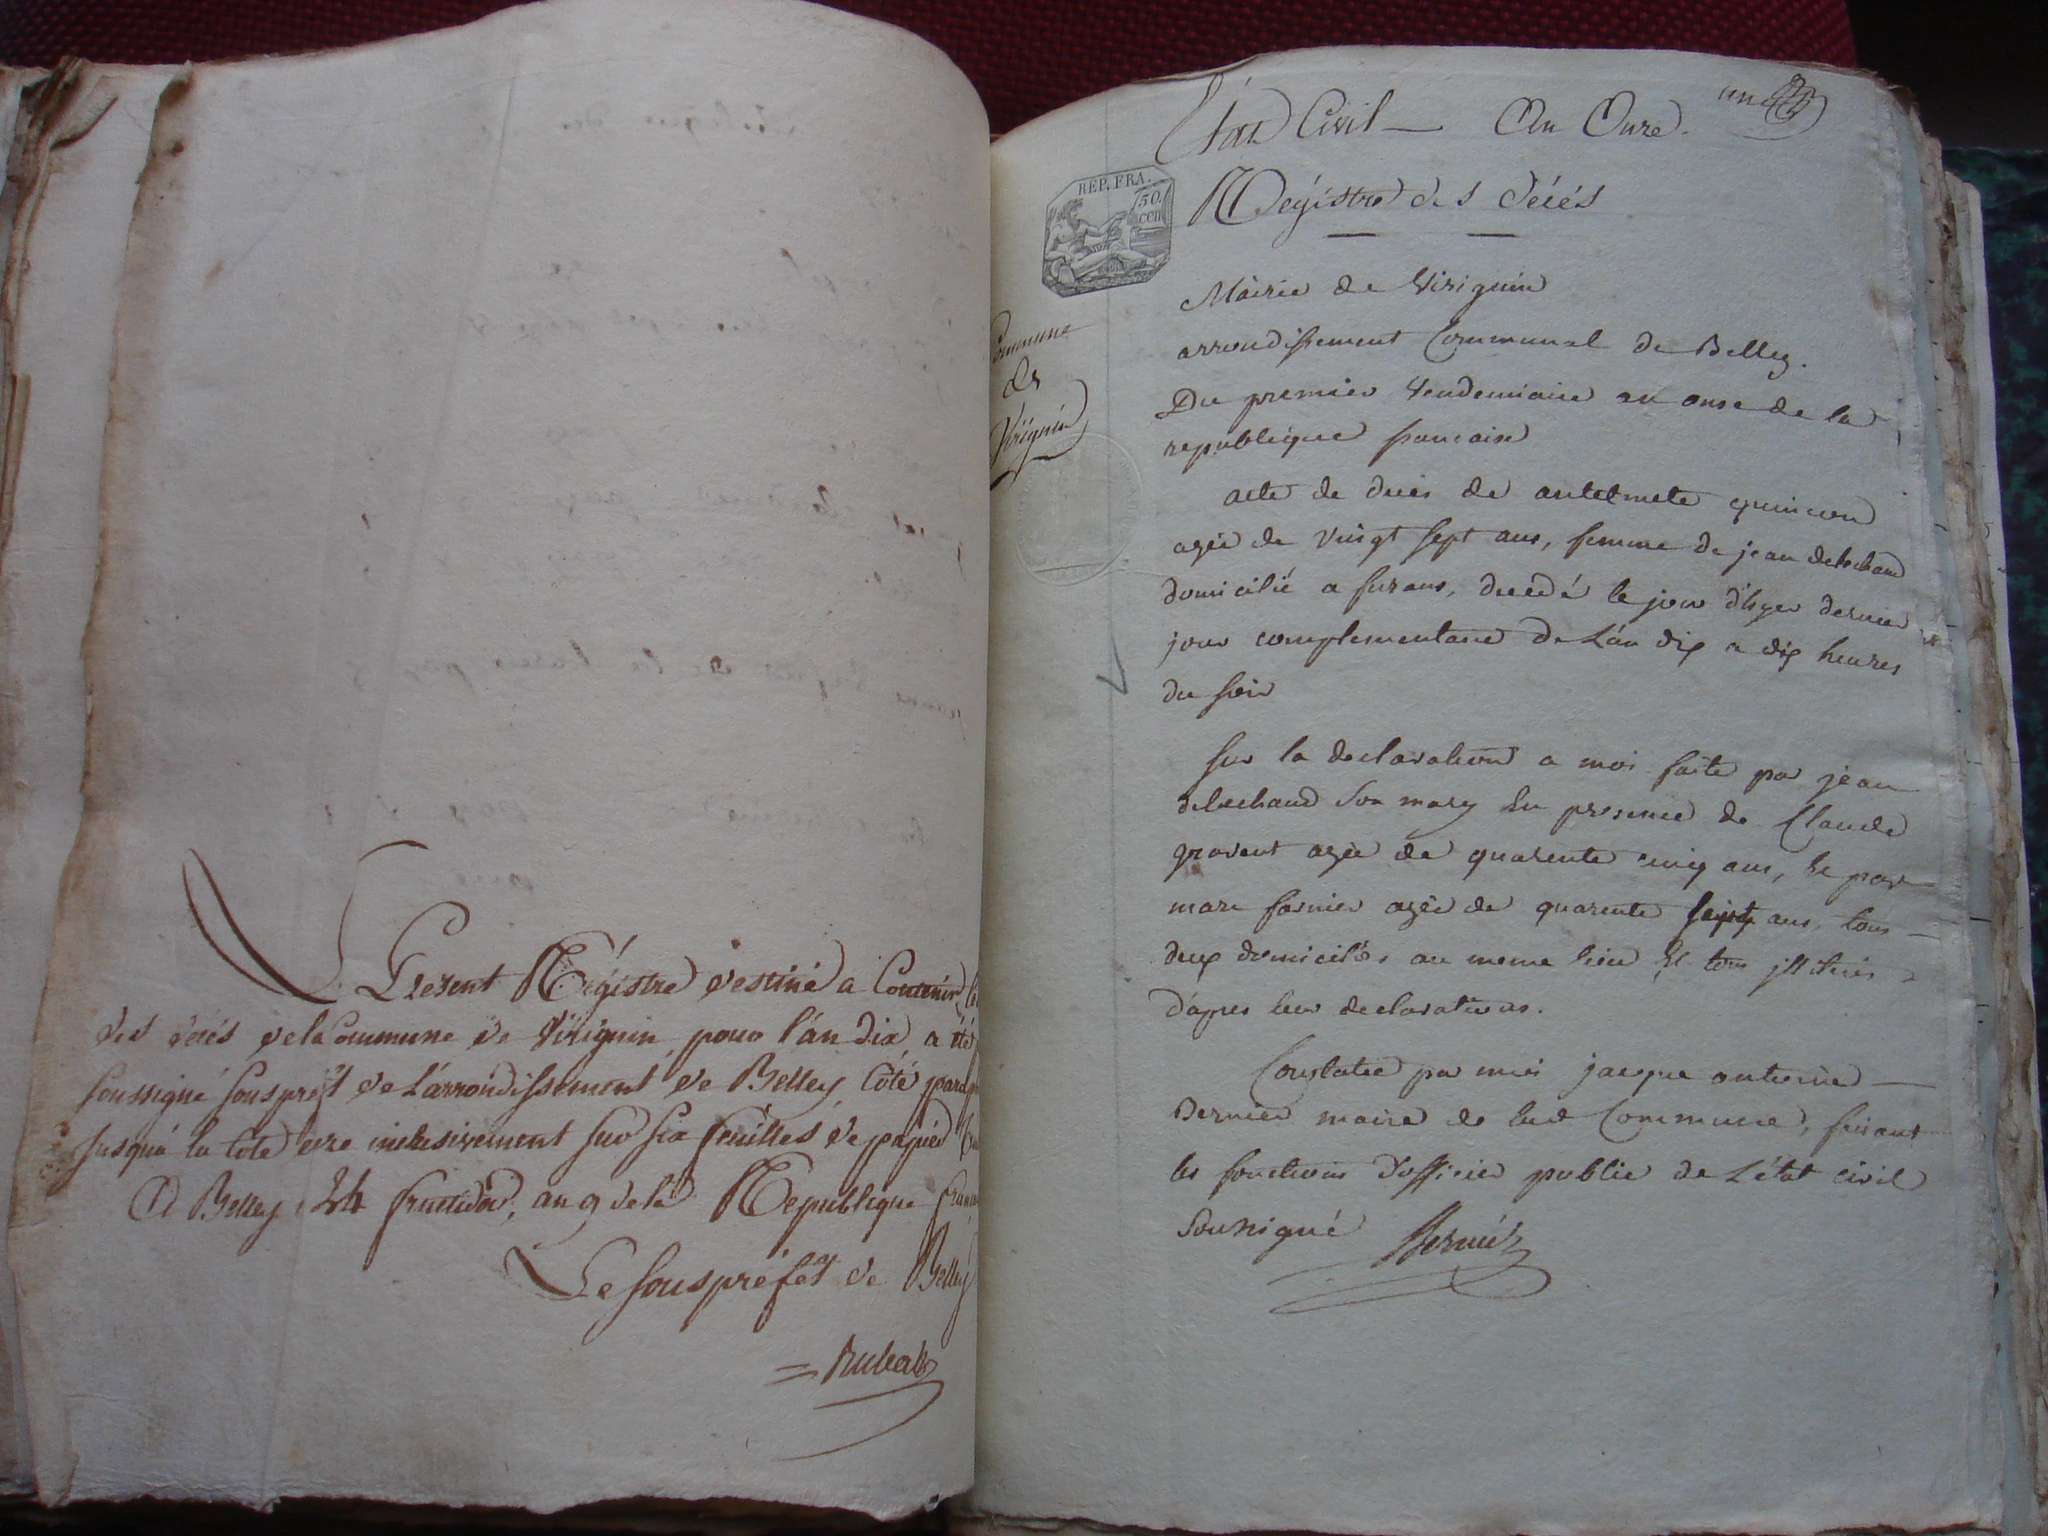 Le Present Régistre destiné a Contenir
des décés de la Commune de Virignin, pour l'an dix a été
soussigné sousprèft de L'arrondissement de Belley, Coté
Jusqu'à la Cote inclusivement sur six feuilles de papier
A Belley 24 fructidor, an 9 de la Republique
Le sousprefet de Belley
État Civil — An Onze.
une
Régistre des décés
REP. FRA.
50
cen
Commune
de
Virignin
Mairie de Virignin
arrondissement Communal de Belley.
Du premier Vendemiaire an onse de la
republique francaise
acte de deces de antelmete quincon
agée de vingt sept ans, femme de jean delochand
domicilié a furans, decedé le jour d'hyer dernier
jour complementaire de L'an dix a dix heures
du soir
sur la declaration a moi faite par jean
delochand son mary En presence de Claude
gravent agée de quarente cinq ans, Et par
marc fornier agée de quarente ans, tous
deux domiciliés au meme lieu Et tous illiterés
d'apres leur declarations.
Constatée par moi jacque antoine
Bernier maire de lad Commune, faisant
les fonctions d'officier public de L'état civil
soussigné